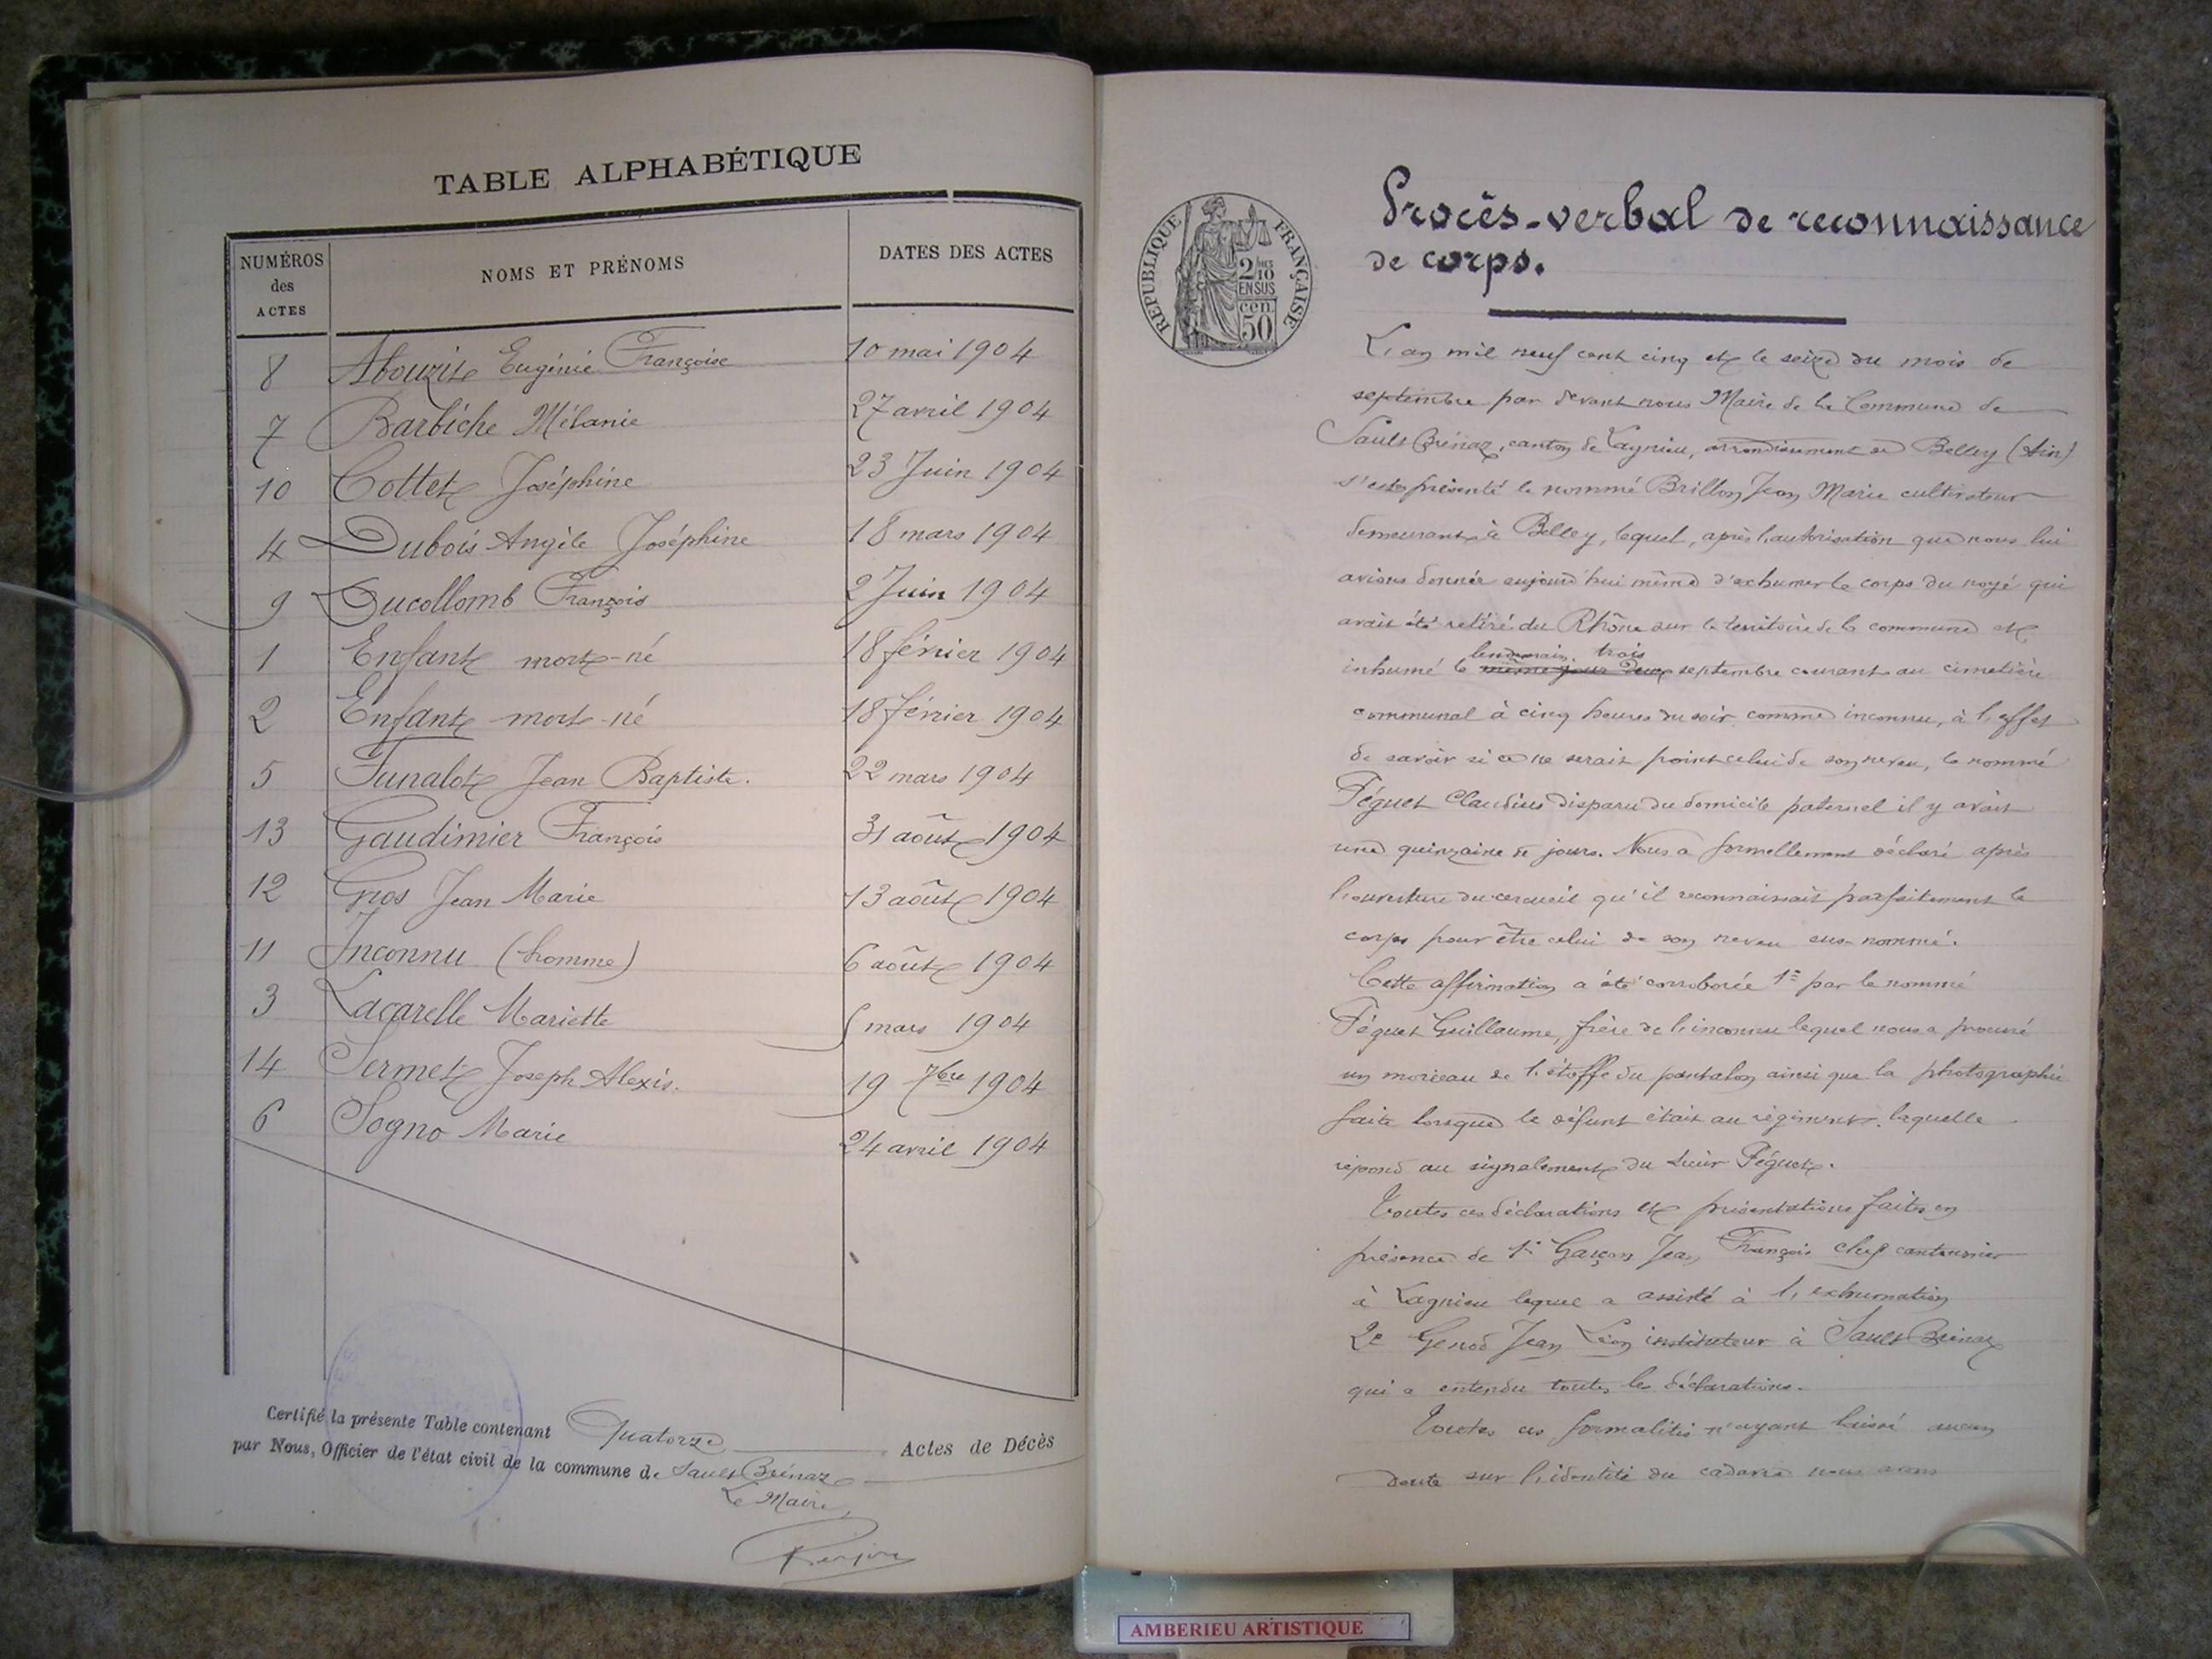 TABLE ALPHABÉTIQUE
NUMÉROS des ACTES
NOMS ET PRÉNOMS
DATES DES ACTES
8 Abouzit Eugénie Françoise 10 mai 1904
7 Barbiche Mélanie 27 avril 1904
10 Cottet Joséphine 23 Juin 1904
4 Dubois Angèle Joséphine 18 mars 1904
9 Ducollomb François 2 Juin 1904
1 Enfant mort-né 18 février 1904
2 Enfant mort-né 18 février 1904
5 Funalot Jean Baptiste. 22 mars 1904
13 Gaudimier François 31 août 1904
12 Gros Jean Marie 13 août 1904
11 Inconnu (homme) 6 août 1904
3 Lacarelle Mariette mars 1904
14 Sermet Joseph Alexis. 19 7bre 1904
6 Sogno Marie 24 avril 1904
Certifié la présente Table contenant Quatorze Actes de Décès
par Nous, Officier de l'état civil de la commune de Sault Brénaz
Le Maire,
REPUBLIQUE FRANÇAISE
2/10
EN SUS
50 cen
Procès-verbal de reconnaissance
de corps.
L'an mil neuf cent cinq et le seize du mois de
septembre par devant nous Maire de la Commune de
Sault Brénaz, canton de Lagnieu, arrondissement de Belley (Ain)
s'est présenté le nommé Brillon Jean Marie cultivateur
demeurant à Belley, lequel, après l'autorisation que nous lui
avions donnée aujourd'hui même d'exhumer le corps du noyé qui
avait été retiré du Rhône sur le territoire de la commune et
lendemain trois
inhumé le même jour deux septembre courant au cimetière
communal à cinq heures du soir comme inconnu, à l'effet
de savoir si ce ne serait point celui de son neveu, le nommé
Féguet Claudius disparu du domicile paternel il y avait
une quinzaine de jours. Nous a formellement déclaré après
l'ouverture du cercueil qu'il reconnaissait parfaitement le
corps pour être celui de son neveu sus-nommé.
Cette affirmation a été corroborée 1º par le nommé
Féguet Guillaume, frère de l'inconnu lequel nous a procuré
un morceau de l'étoffe du pantalon ainsi que la photographie
faite lorsque le défunt était au régiment, laquelle
répond au signalement du sieur Féguet.
Toutes ces déclarations et présentations faites en
présence de 1º Garçon Jean François chef cantonnier
à Lagnieu lequel a assisté à l'exhumation
2º Genod Jean Léon instituteur à Sault Brénaz
qui a entendu toutes les déclarations.
Toutes ces formalités n'ayant laissé aucun
doute sur l'identité du cadavre nous avons
AMBERIEU ARTISTIQUE